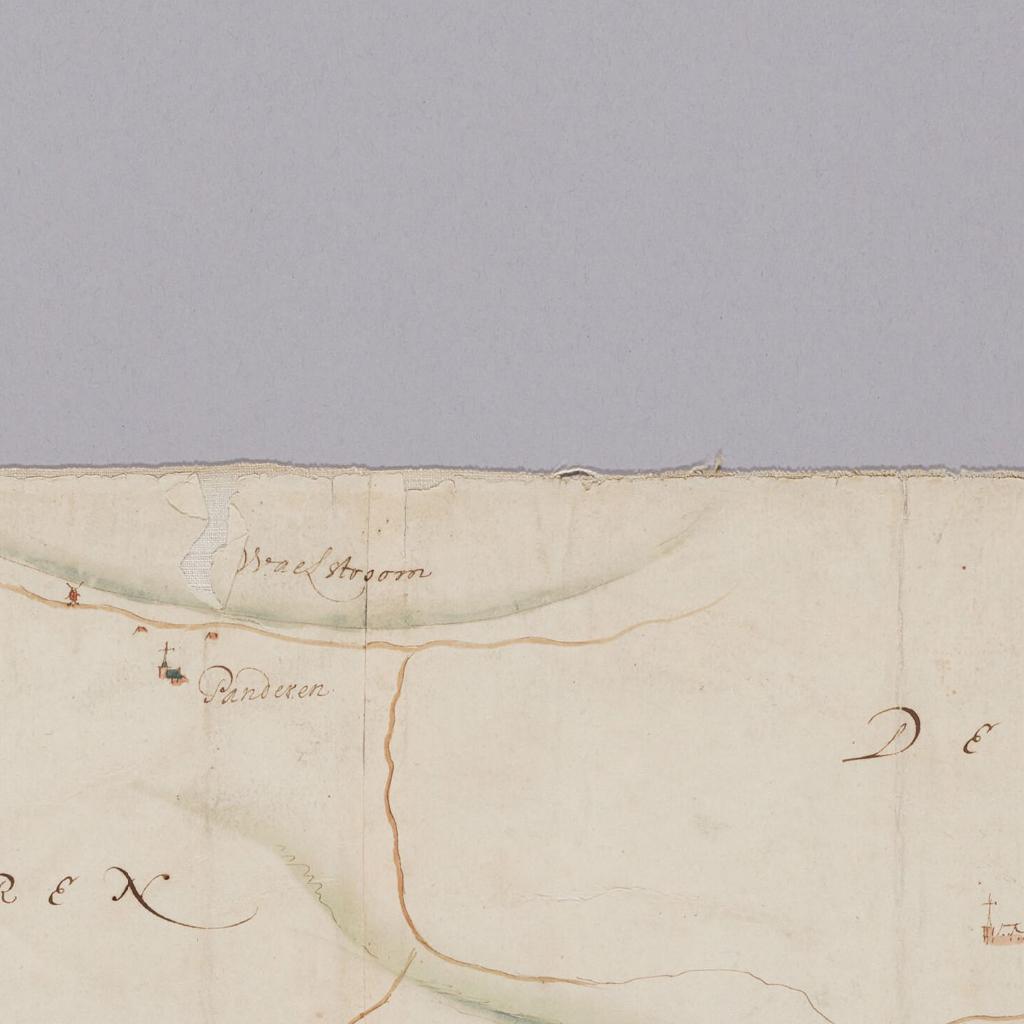 Waelstroom
Panderen
D E
R E N